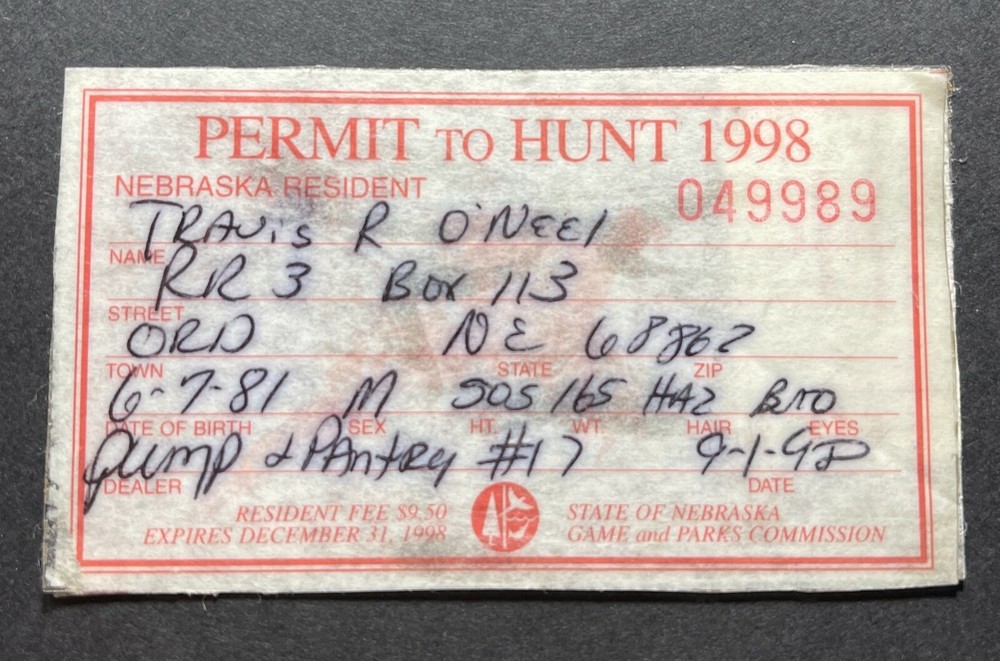 PERMIT TO HUNT 1998
NEBRASKA RESIDENT 049989
TRAVIS R O'NEEl
NAME
RR 3 Box 113
STREET
ORD NE 68862
TOWN STATE ZIP
6-7-81 M 505 165 HAZ BRO
DATE OF BIRTH SEX HT. WT. HAIR EYES
Pump & PAntRy #17 9-1-98
DEALER DATE
RESIDENT FEE $9.50 STATE OF NEBRASKA
EXPIRES DECEMBER 31, 1998 GAME and PARKS COMMISSION